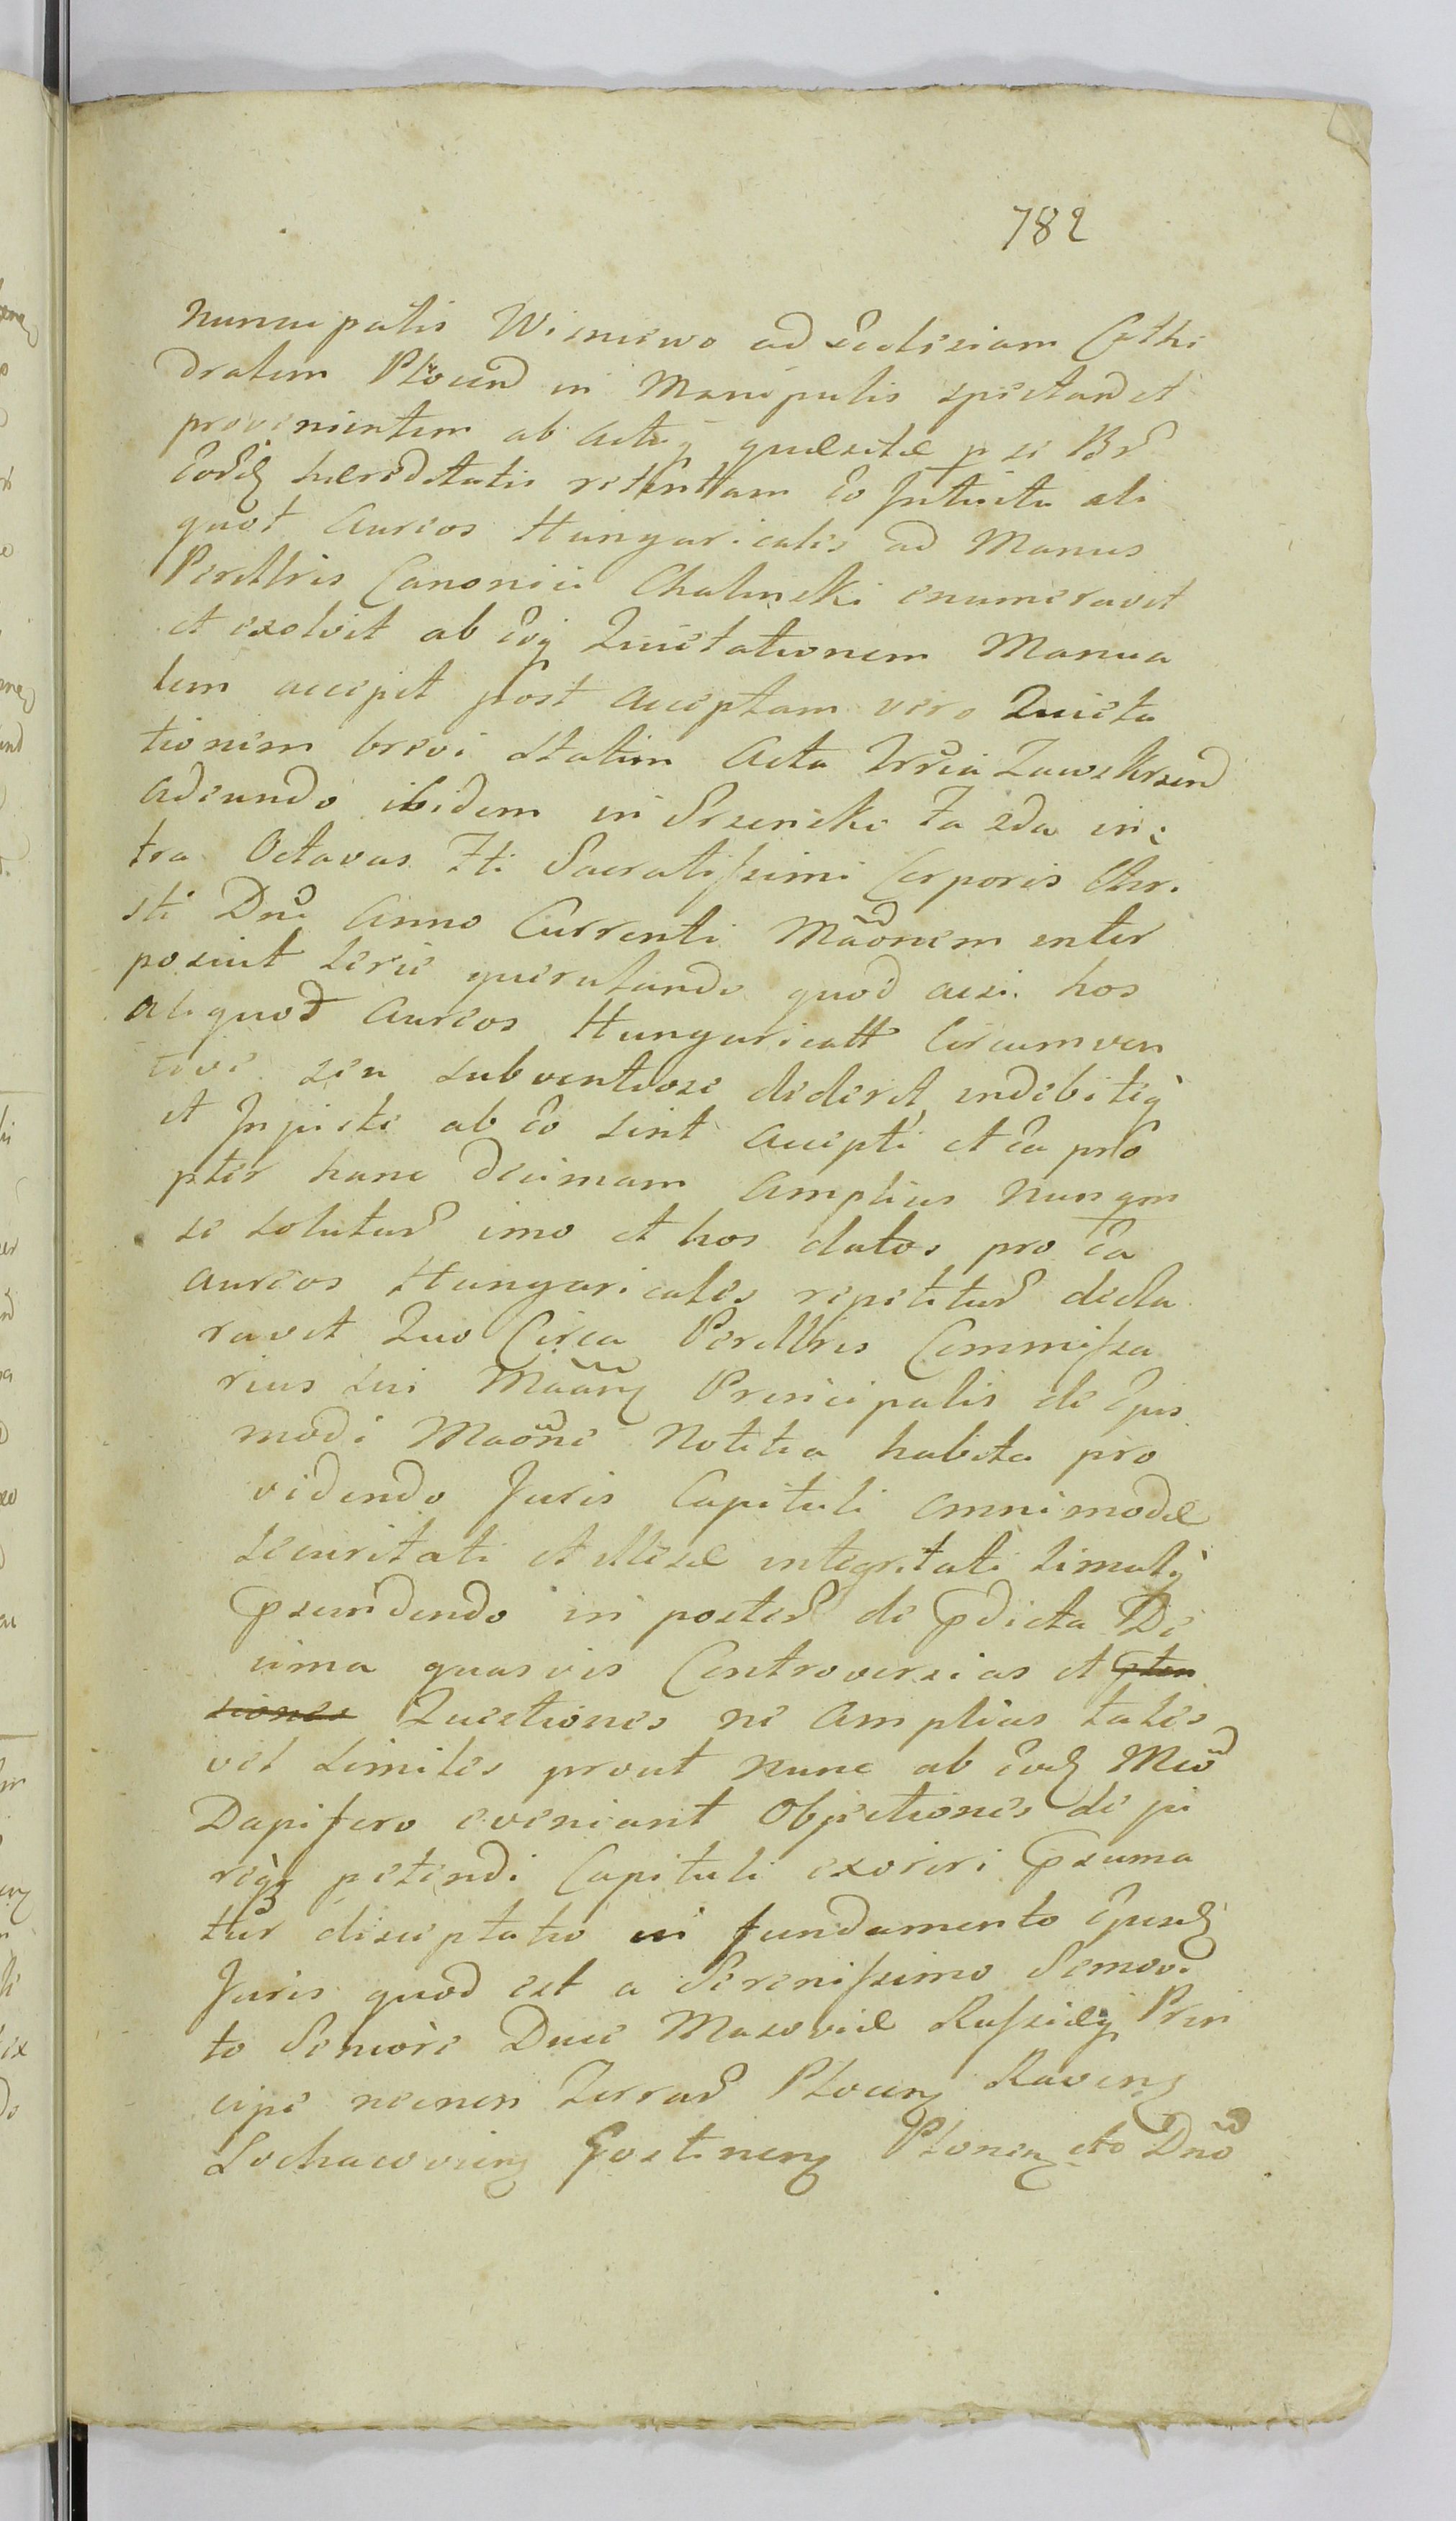 782
nuncupatis Wisniewo ad Ecclesiam Cathe
dralem Plocen in Manipulis spectan et
provenientem ab actuq quæsitæ p se Br
Eord hæreditatis retentam Eo Intuitu ali
quot Aureos Hungaricales ad Manus
Perillris Canonici Chalinski enumeravit
et exolvit ab Eoq Quietationem Manua
lem accepit post acceptam vero Quieta
tionem brevi statim Acta Trria Zawskrzen
adeundo ibidem in Srzensko fa 2da in:
tra Octavas fti Sacratissimi Corporis Chri
sti Dni Anno Currenti Mãonem inter
posuit serie querulando quod acsi hos
aliquod Aureos Hungaricall Circumven
tive seu subventiose dederit, indebiteq
et Injuste ab Eo sint accepti et Ea pro
pter hanc decimam amplius nunqm
se solutur imo et hos datos pro Ea
aureos Hungaricales repetitur decla
ravit Quo Circa Perillris Commissa
rius sui Mãan Principalis de Ejus
modi Maõne Notitia habita pro
videndo Juris Capituli omnimodæ
securitati et illæsæ integritati simulq
præscindendo in poster de pdicta De
cima quasvis Controversias et pten
siones Quæstiones ne amplius tales
vel similes prout nunc ab Eod Mco
Dapifero eveniant Objectiones de ju
reqz petendi Capituli exoriri psuma
tur disceptatio in fundamento Ejusd
Juris quod est a Serenissimo Semovi
to Seniore Duce Masoviæ Russiæq Prin
cipe necnen Terrar Plocen Raven
Sochaczovien Gostinen Plonen etc Dno